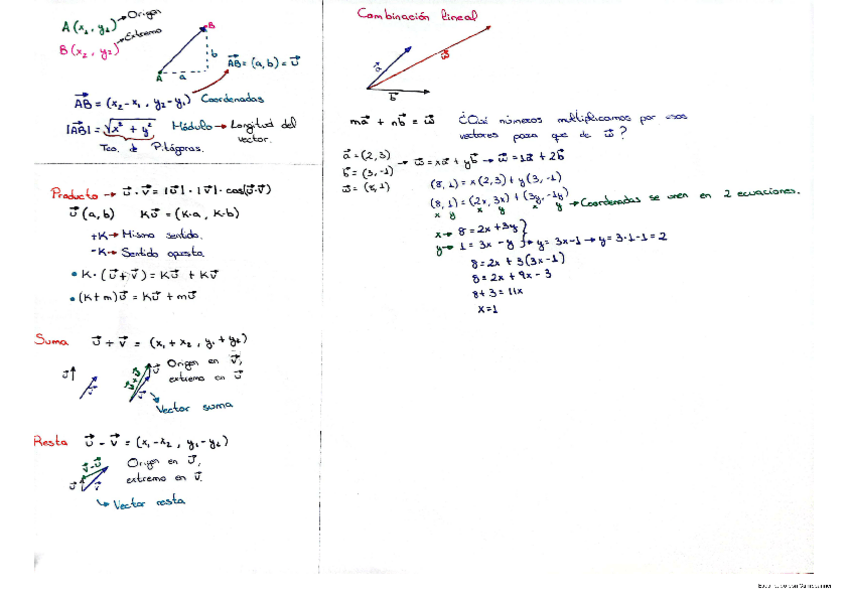 A(x₁, y₁) → Origen
B(x₂, y₂) → Extremo
A
B
a
b
AB⃗ = (a, b) = u⃗
AB⃗ = (x₂-x₁, y₂-y₁) Coordenadas
|AB⃗| = √x² + y² Módulo → Longitud del
vector.
Teo. de Pitágoras.
Producto → u⃗ · v⃗ = |u⃗| · |v⃗| · cos(u⃗·v⃗)
u⃗ (a, b) Ku⃗ = (K·a, K·b)
+K → Mismo sentido.
-K → Sentido opuesto.
• K · (u⃗ + v⃗) = Ku⃗ + Kv⃗
• (K+m)u⃗ = Ku⃗ + mu⃗
Suma u⃗ + v⃗ = (x₁ + x₂, y₁ + y₂)
u⃗
v⃗
u⃗+v⃗
u⃗
v⃗
Origen en v⃗,
extremo en u⃗
Vector suma
Resta u⃗ - v⃗ = (x₁-x₂, y₁-y₂)
v⃗-u⃗
u⃗
v⃗
Origen en u⃗,
extremo en v⃗.
Vector resta
Combinación lineal
a⃗
w⃗
b⃗
ma⃗ + nb⃗ = w⃗ ¿Qué números multiplicamos por esos
vectores para que de w⃗?
a⃗ = (2, 3)
b⃗ = (3, -1)
w⃗ = (8, 1)
→ w⃗ = xa⃗ + yb⃗ → w⃗ = 1a⃗ + 2b⃗
(8, 1) = x(2, 3) + y(3, -1)
(8, 1) = (2x, 3x) + (3y, -1y) → Coordenadas se unen en 2 ecuaciones.
x y x y x y
x → 8 = 2x + 3y
y → 1 = 3x - y → y = 3x-1 → y = 3·1-1 = 2
8 = 2x + 3(3x-1)
8 = 2x + 9x - 3
8 + 3 = 11x
x = 1